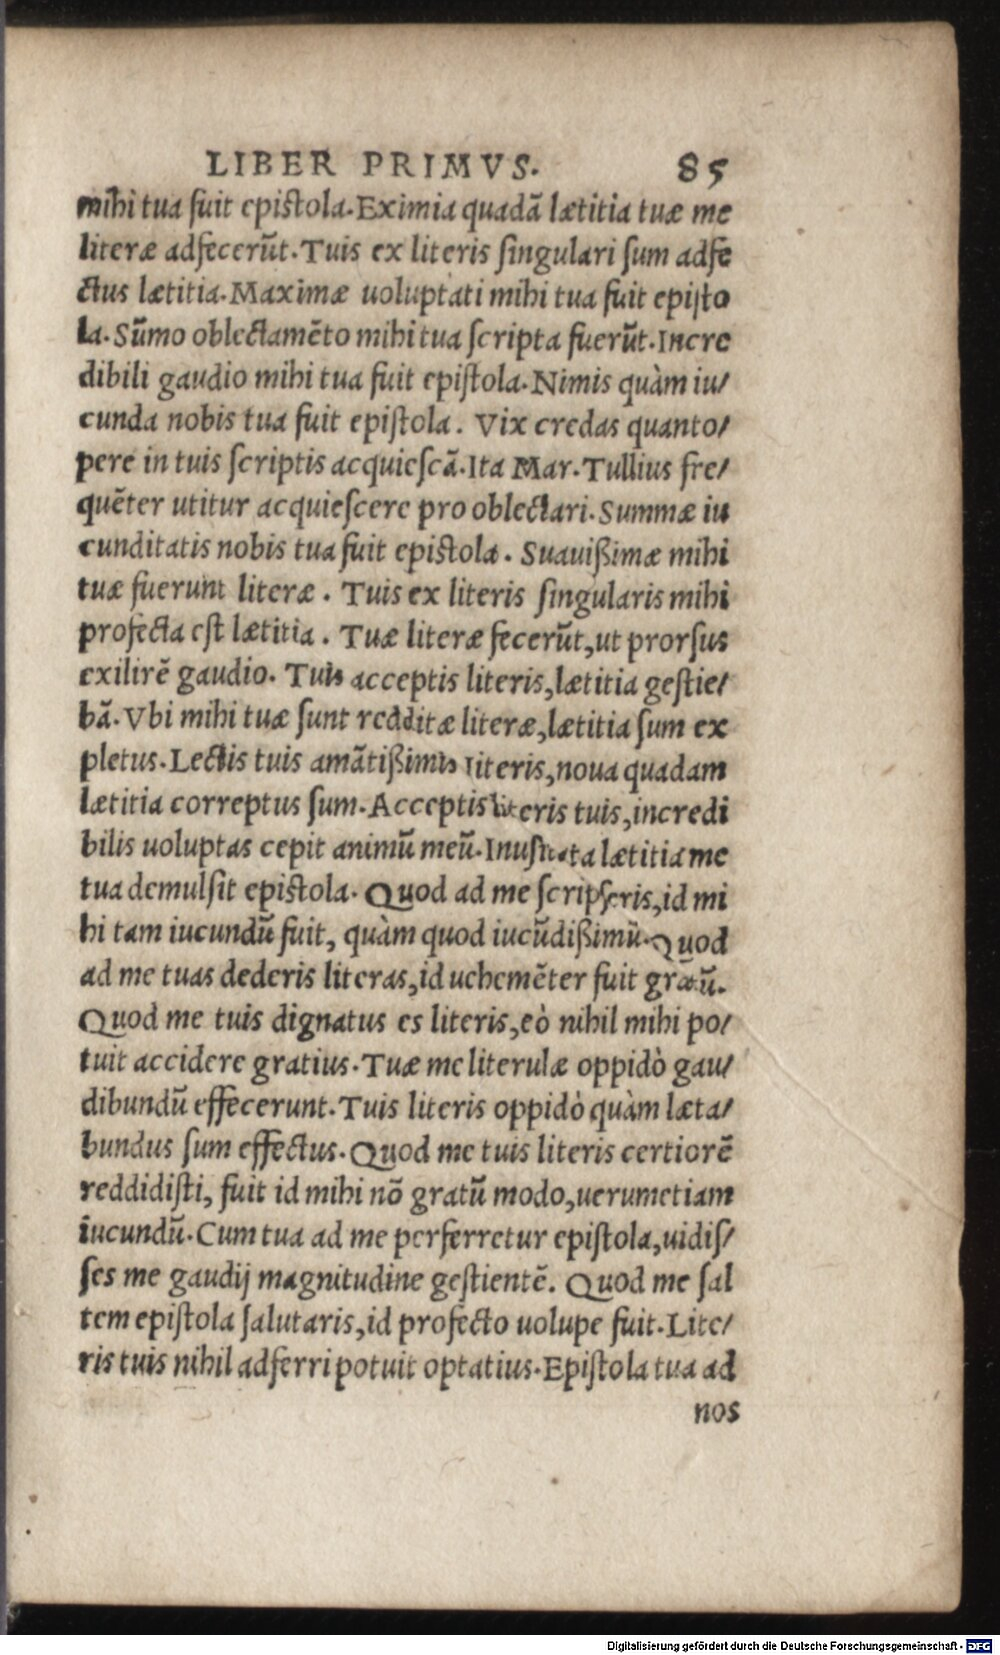 LIBER PRIMVS. 85
mihi tua fuit epistola. Eximia quadā lætitia tuæ me
literæ adfecerūt. Tuis ex literis singulari sum adfe
ctus lætitia. Maximæ uoluptati mihi tua fuit episto
la. Sūmo oblectamēto mihi tua scripta fuerūt. Incre
dibili gaudio mihi tua fuit epistola. Nimis quàm iu/
cunda nobis tua fuit epistola. Vix credas quanto/
pere in tuis scriptis acquiescā. Ita Mar. Tullius fre/
quēter utitur acquiescere pro oblectari. Summæ iu
cunditatis nobis tua fuit epistola. Suauißimæ mihi
tuæ fuerunt literæ. Tuis ex literis singularis mihi
profecta est lætitia. Tuæ literæ fecerūt, ut prorsus
exilirē gaudio. Tuis acceptis literis, lætitia gestie/
bā. Vbi mihi tuæ sunt redditæ literæ, lætitia sum ex
pletus. Lectis tuis amātißimis literis, noua quadam
lætitia correptus sum. Acceptis literis tuis, incredi
bilis uoluptas cepit animū meū. Inusitata lætitia me
tua demulsit epistola. Quod ad me scripseris, id mi
hi tam iucundū fuit, quàm quod iucūdißimū. Quod
ad me tuas dederis literas, id uehemēter fuit gratū.
Quod me tuis dignatus es literis, eò nihil mihi po/
tuit accidere gratius. Tuæ me literulæ oppidò gau/
dibundū effecerunt. Tuis literis oppidò quàm læta/
bundus sum effectus. Quod me tuis literis certiorē
reddidisti, fuit id mihi nō gratū modo, uerumetiam
iucundū. Cum tua ad me perferretur epistola, uidis/
ses me gaudij magnitudine gestientē. Quod me sal
tem epistola salutaris, id profecto uolupe fuit. Lite/
ris tuis nihil adferri potuit optatius. Epistola tua ad
nos
Digitalisierung gefördert durch die Deutsche Forschungsgemeinschaft - DFG